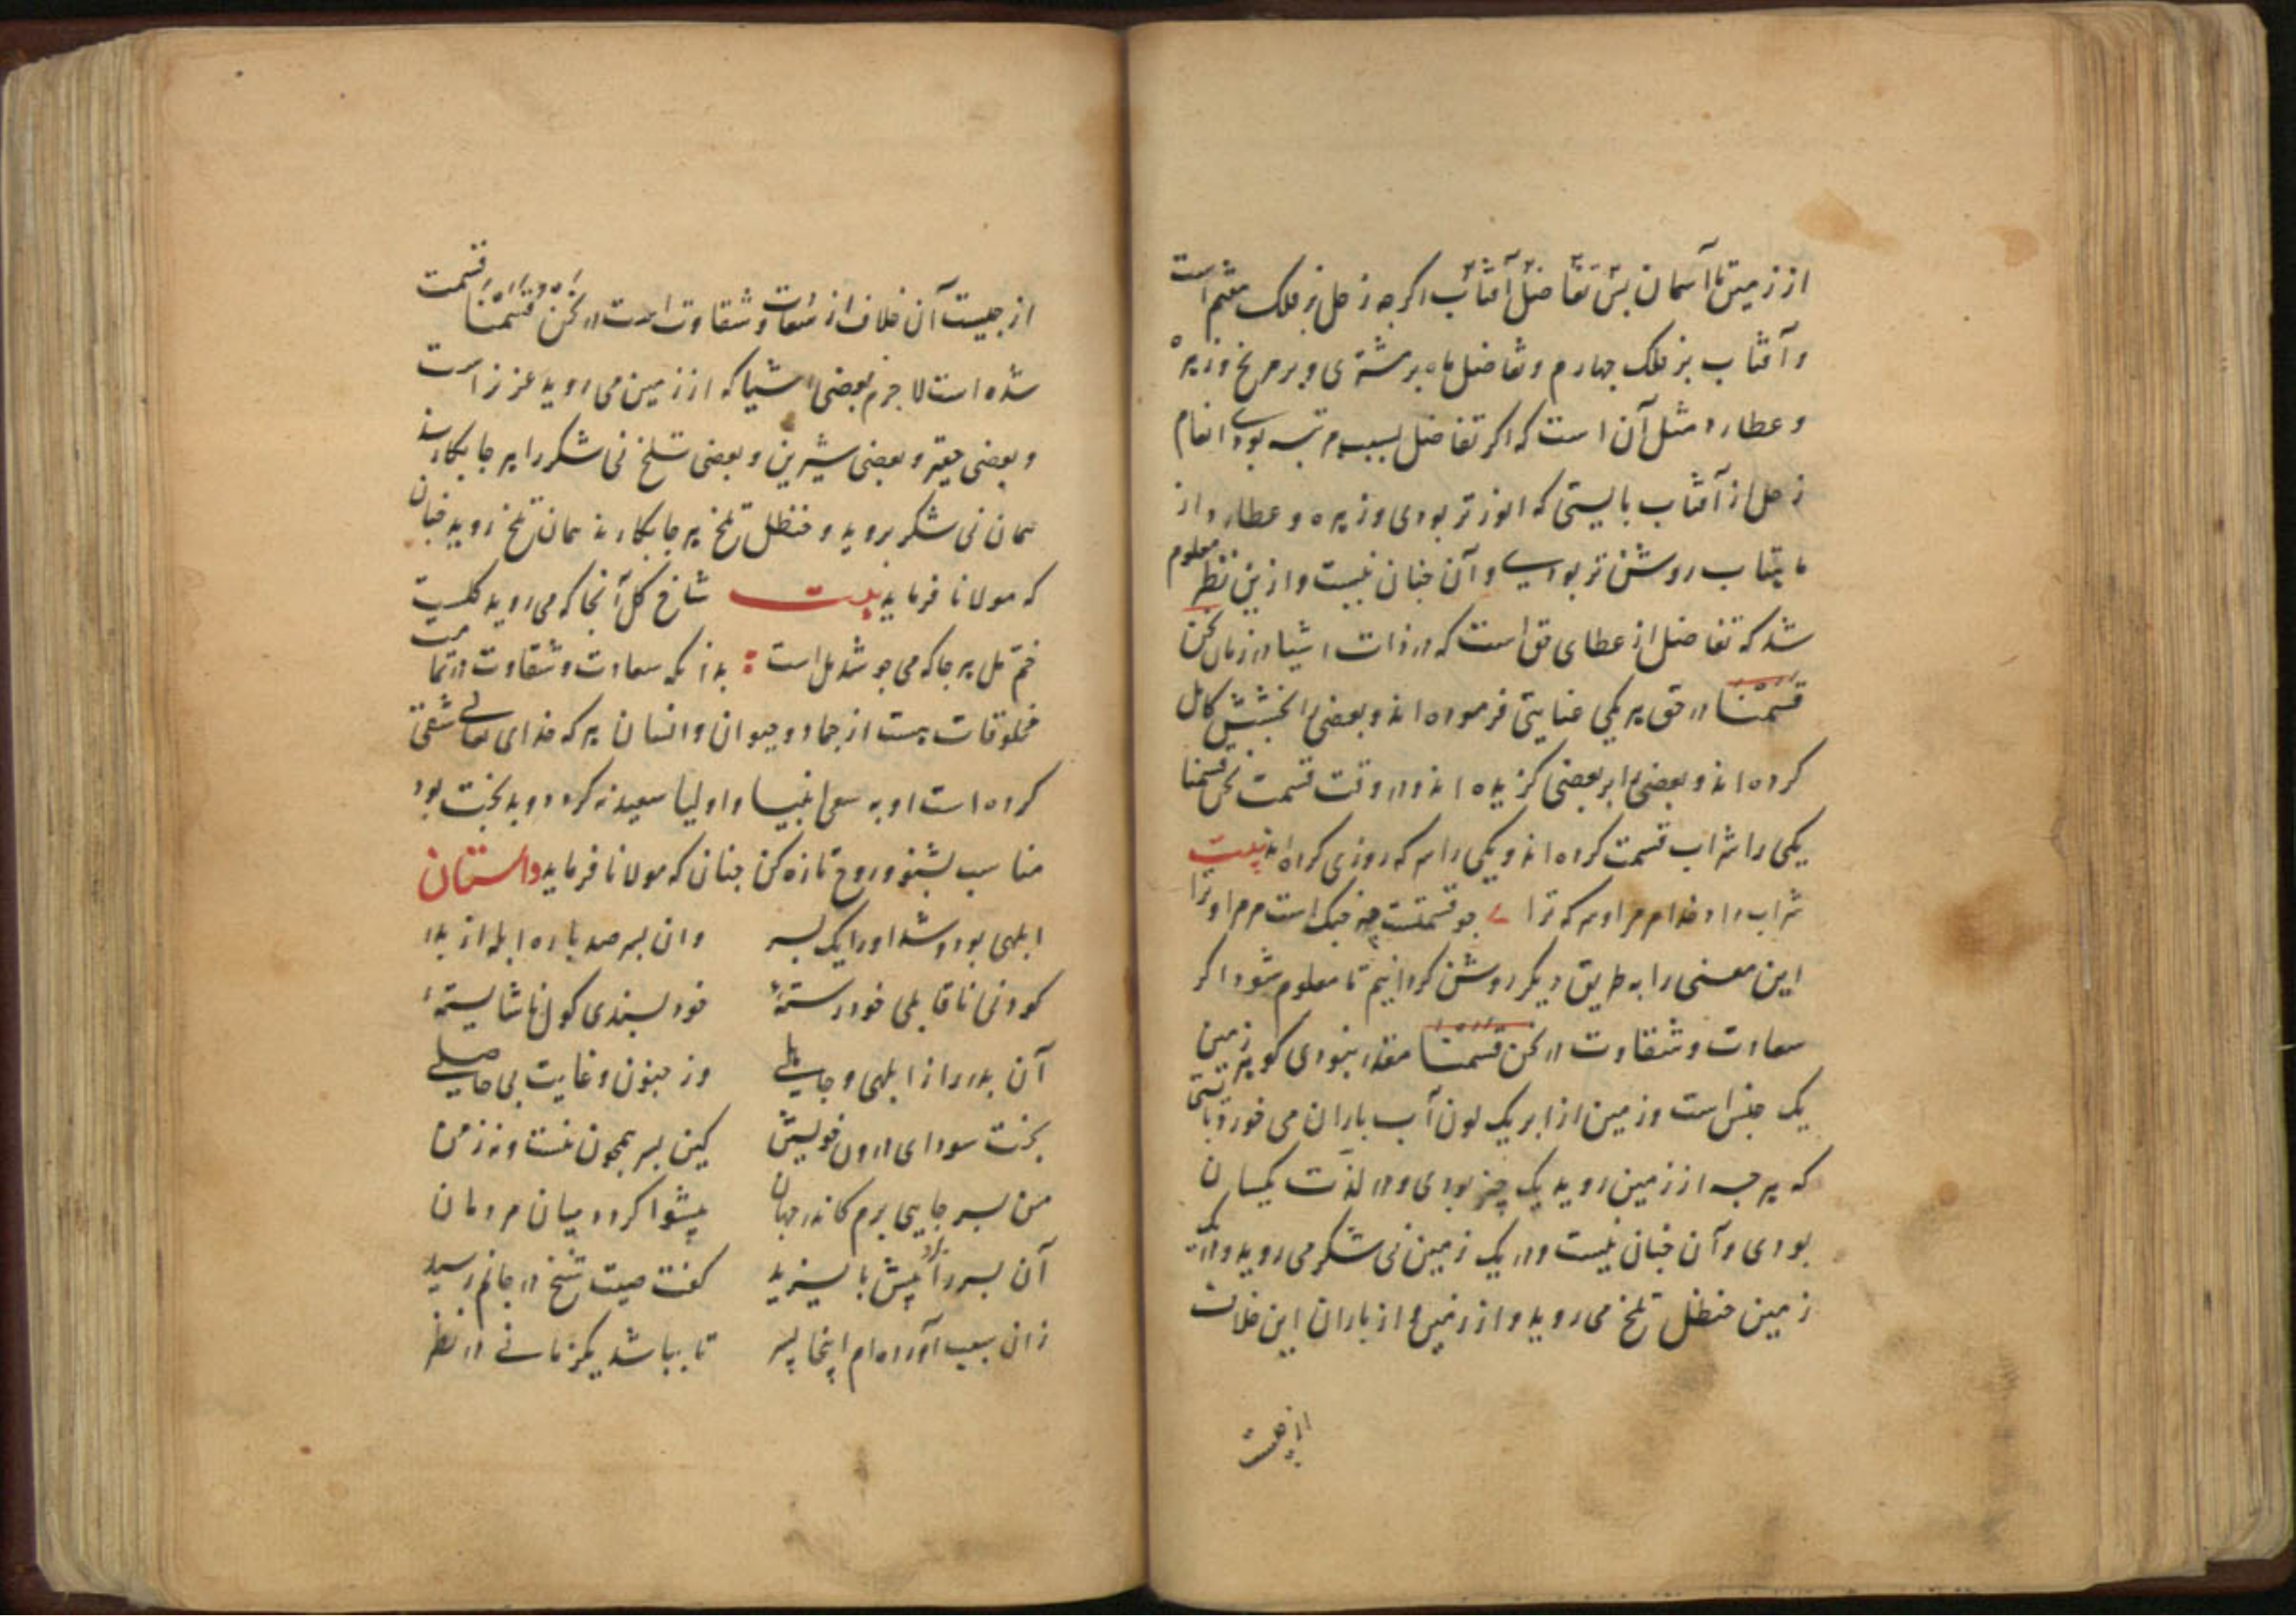 از زمین تا آسمان پس تفاضل آفتاب اگرچه زحل بر فلک هفتم است
و آفتاب بر فلک چهارم و تفاضل ماه بر مشتری و بر مریخ و زهره
و عطارد مثل آن است که اگر تفاضل بسبب مرتبه بودی انعام
زحل از آفتاب بایستی که انور تر بودی و زهره و عطارد از
ماهتاب روشن تر بودی و آن چنان نیست و ازین نظر معلوم
شد که تفاضل از عطای حق است که در ذات اشیا در زمان نحن
قسمنا در حق هر یکی عنایتی فرموده اند و بعضی را بخشش کامل
کرده اند و بعضی را بر بعضی گزیده اند و در وقت قسمت نحن قسمنا
یکی را شراب قسمت کرده اند و یکی را سرکه روزی کرده اند بیت
شراب داد خدا مر مرا و سرکه ترا چو قسمتست چه جنگ است مر مرا و ترا
این معنی را به طریق دیگر روشن گردانیم تا معلوم شود اگر
سعادت و شقاوت در نحن قسمنا مقدر نبودی گو هر زمین
یک جنس است و زمین از ابر یک لون آب باران می خورد بایستی
که هر چه از زمین روید یک چیز بودی و در لذت یکسان
بودی و آن چنان نیست و در یک زمین نی شکر می روید و در یک
زمین حنظل تلخ می روید و از زمین و از باران این خلاف
از چیست
از چیست آن خلاف از سعادت و شقاوت است در نحن قسمنا قسمت
شده است لاجرم بعضی اشیا که از زمین می روید عزیز است
و بعضی حقیر و بعضی شیرین و بعضی تلخ نی شکر را هر جا بکارند
همان نی شکر بروید و حنظل تلخ هر جا بکارند همان تلخ روید چنان
که مولانا فرماید بیت شاخ گل آنجا که می روید گلست
خم مل هر جا که می جوشد مل است : بدانکه سعادت و شقاوت در تمامت
مخلوقات هست از جماد و حیوان و انسان هر که خدای تعالی شقی
کرده است او به سعی انبیا و اولیا سعید نه گردد و بدبخت بود
مناسب بشنو و روح تازه کن چنان که مولانا فرماید داستان
ابلهی بود و شد او را یک پسر وان پسر صد باره ابله از پدر
کودنی ناقابلی خودرسته خود پسندی کول ناشایسته
آن پدر را از ابلهی و جاهلی وز جنون و غایت بی حاصلی
پخت سودای درون خویش کین پسر همچون منست و نه ز من
من پسر جایی برم کاندر جهان پیشوا گردد میان مردمان
آن پسر را برد پیش بایزید گفت صیت شیخ در جانم رسید
زان سبب آورده ام اینجا پسر تا بباشد یکزمانی در نظر